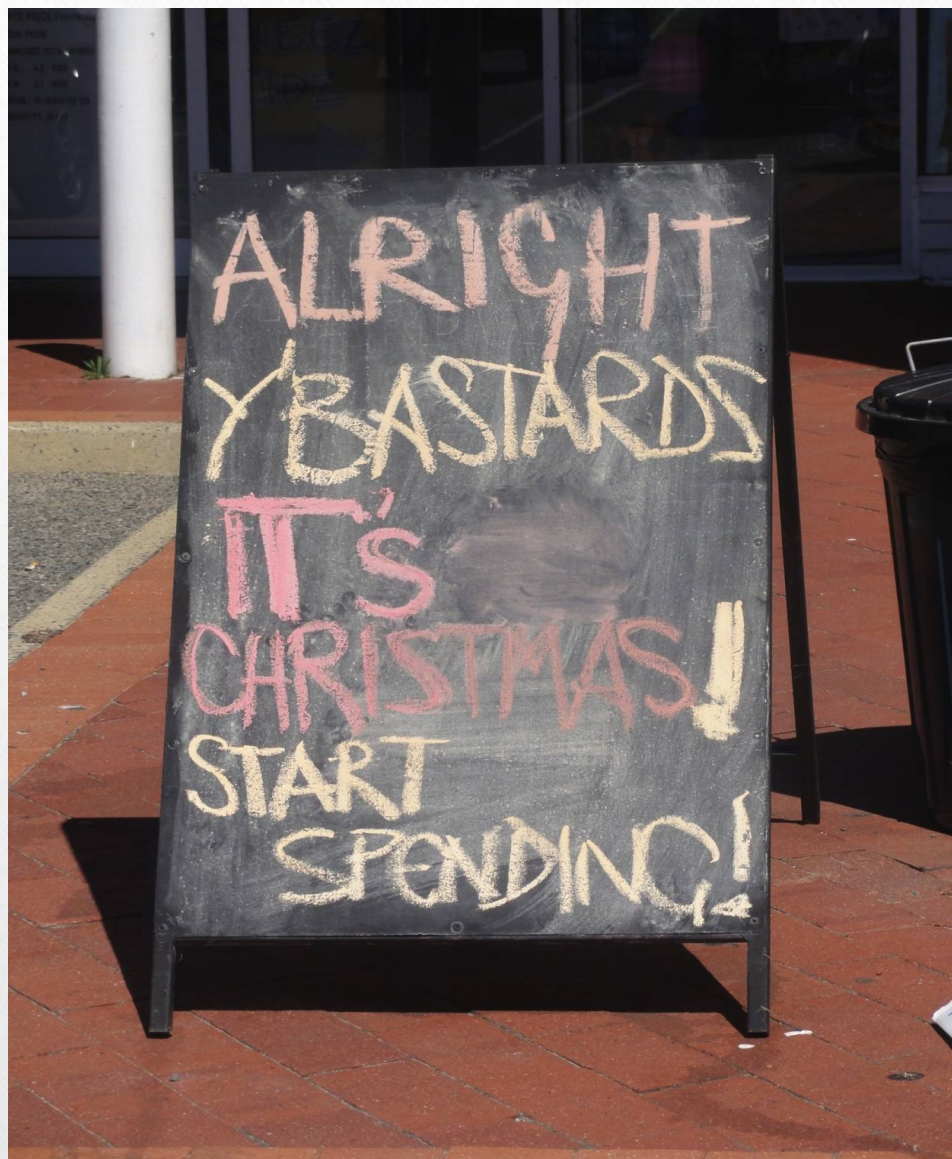 ALRIGHT
Y'BASTARDS
IT's
CHRISTMAS!
START
SPENDING!